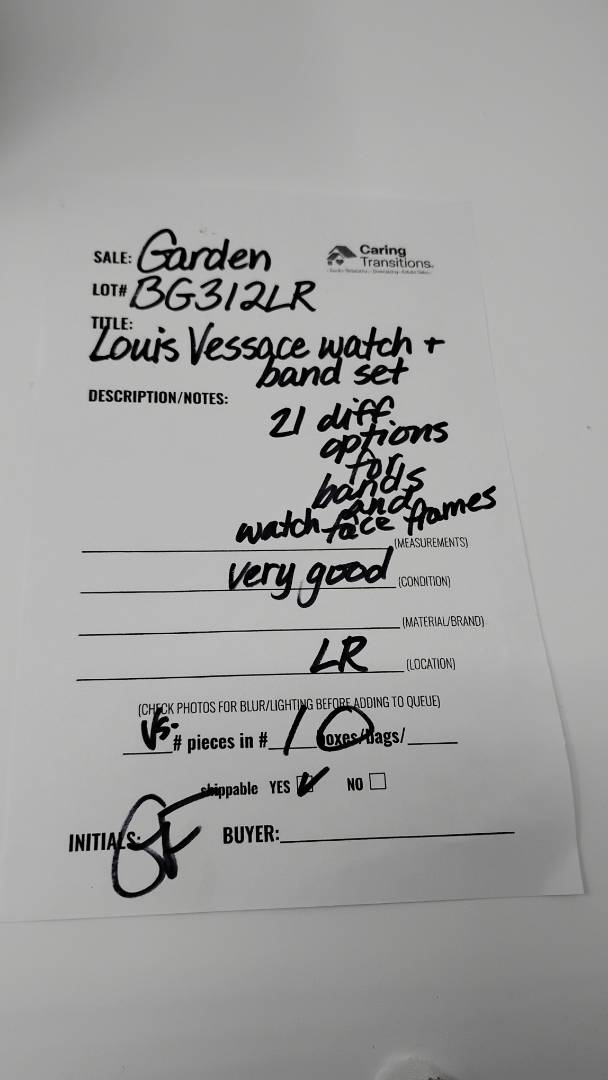 SALE: Garden
Caring
Transitions.
LOT# BG312LR
TITLE:
Louis Vessace watch +
band set
DESCRIPTION/NOTES:
21 diff
options
for
bands
and
watch face frames
(MEASUREMENTS)
very good (CONDITION)
(MATERIAL/BRAND)
LR (LOCATION)
(CHECK PHOTOS FOR BLUR/LIGHTING BEFORE ADDING TO QUEUE)
VS. # pieces in # 1 boxes/bags/
shippable YES NO
INITIALS: BUYER: